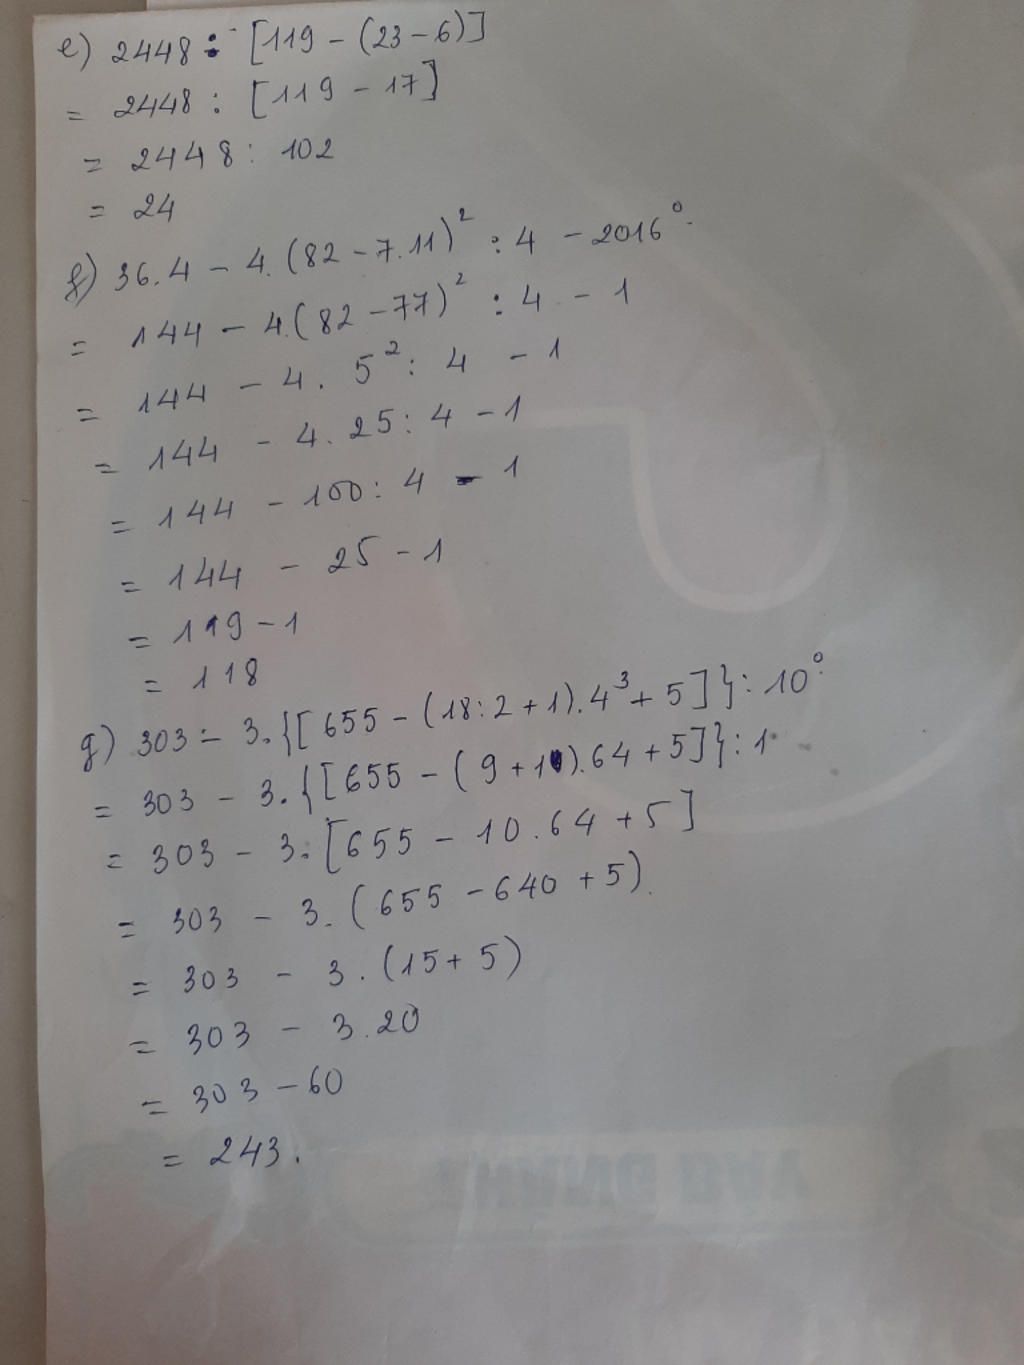 e) 2448 : [119 - (23 - 6)]
= 2448 : [119 - 17]
= 2448 : 102
= 24
f) 36.4 - 4.(82 - 7.11)² : 4 - 2016⁰
= 144 - 4.(82 - 77)² : 4 - 1
= 144 - 4. 5² : 4 - 1
= 144 - 4. 25 : 4 - 1
= 144 - 100 : 4 - 1
= 144 - 25 - 1
= 119 - 1
= 118
g) 303 - 3.{[655 - (18:2 + 1).4³ + 5]} : 10⁰
= 303 - 3.{[655 - (9 + 1).64 + 5]} : 1
= 303 - 3.[655 - 10.64 + 5]
= 303 - 3.(655 - 640 + 5)
= 303 - 3.(15 + 5)
= 303 - 3.20
= 303 - 60
= 243.